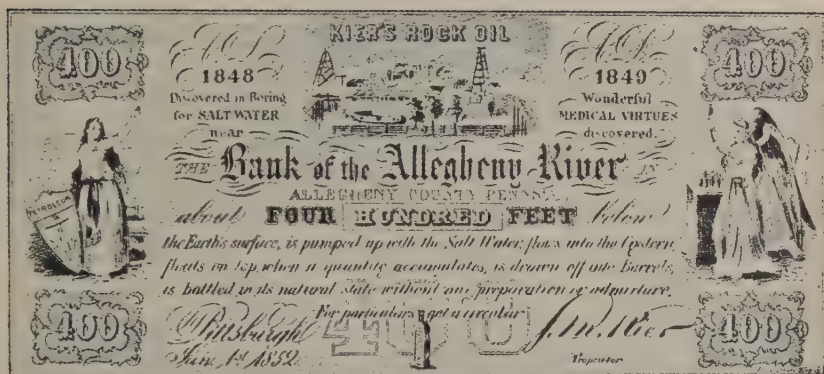 KIER'S ROCK OIL
400
A.D. 1848
Discovered in Boring
for SALT WATER
near
A.D. 1849
Wonderful
MEDICAL VIRTUES
discovered.
400
THE Bank of the Allegheny River IN
ALLEGHENY COUNTY PENNSA.
about FOUR HUNDRED FEET below
the Earth's surface, is pumped up with the Salt Water, flows into the Cistern,
floats on top, when a quantity accumulates, is drawn off into Barrels,
is bottled in its natural state without any preparation or admixture.
For particulars get a circular
PETROLEUM
400
Pittsburgh
Jan. 1st 1852
400
S. M. Kier
Proprietor
400